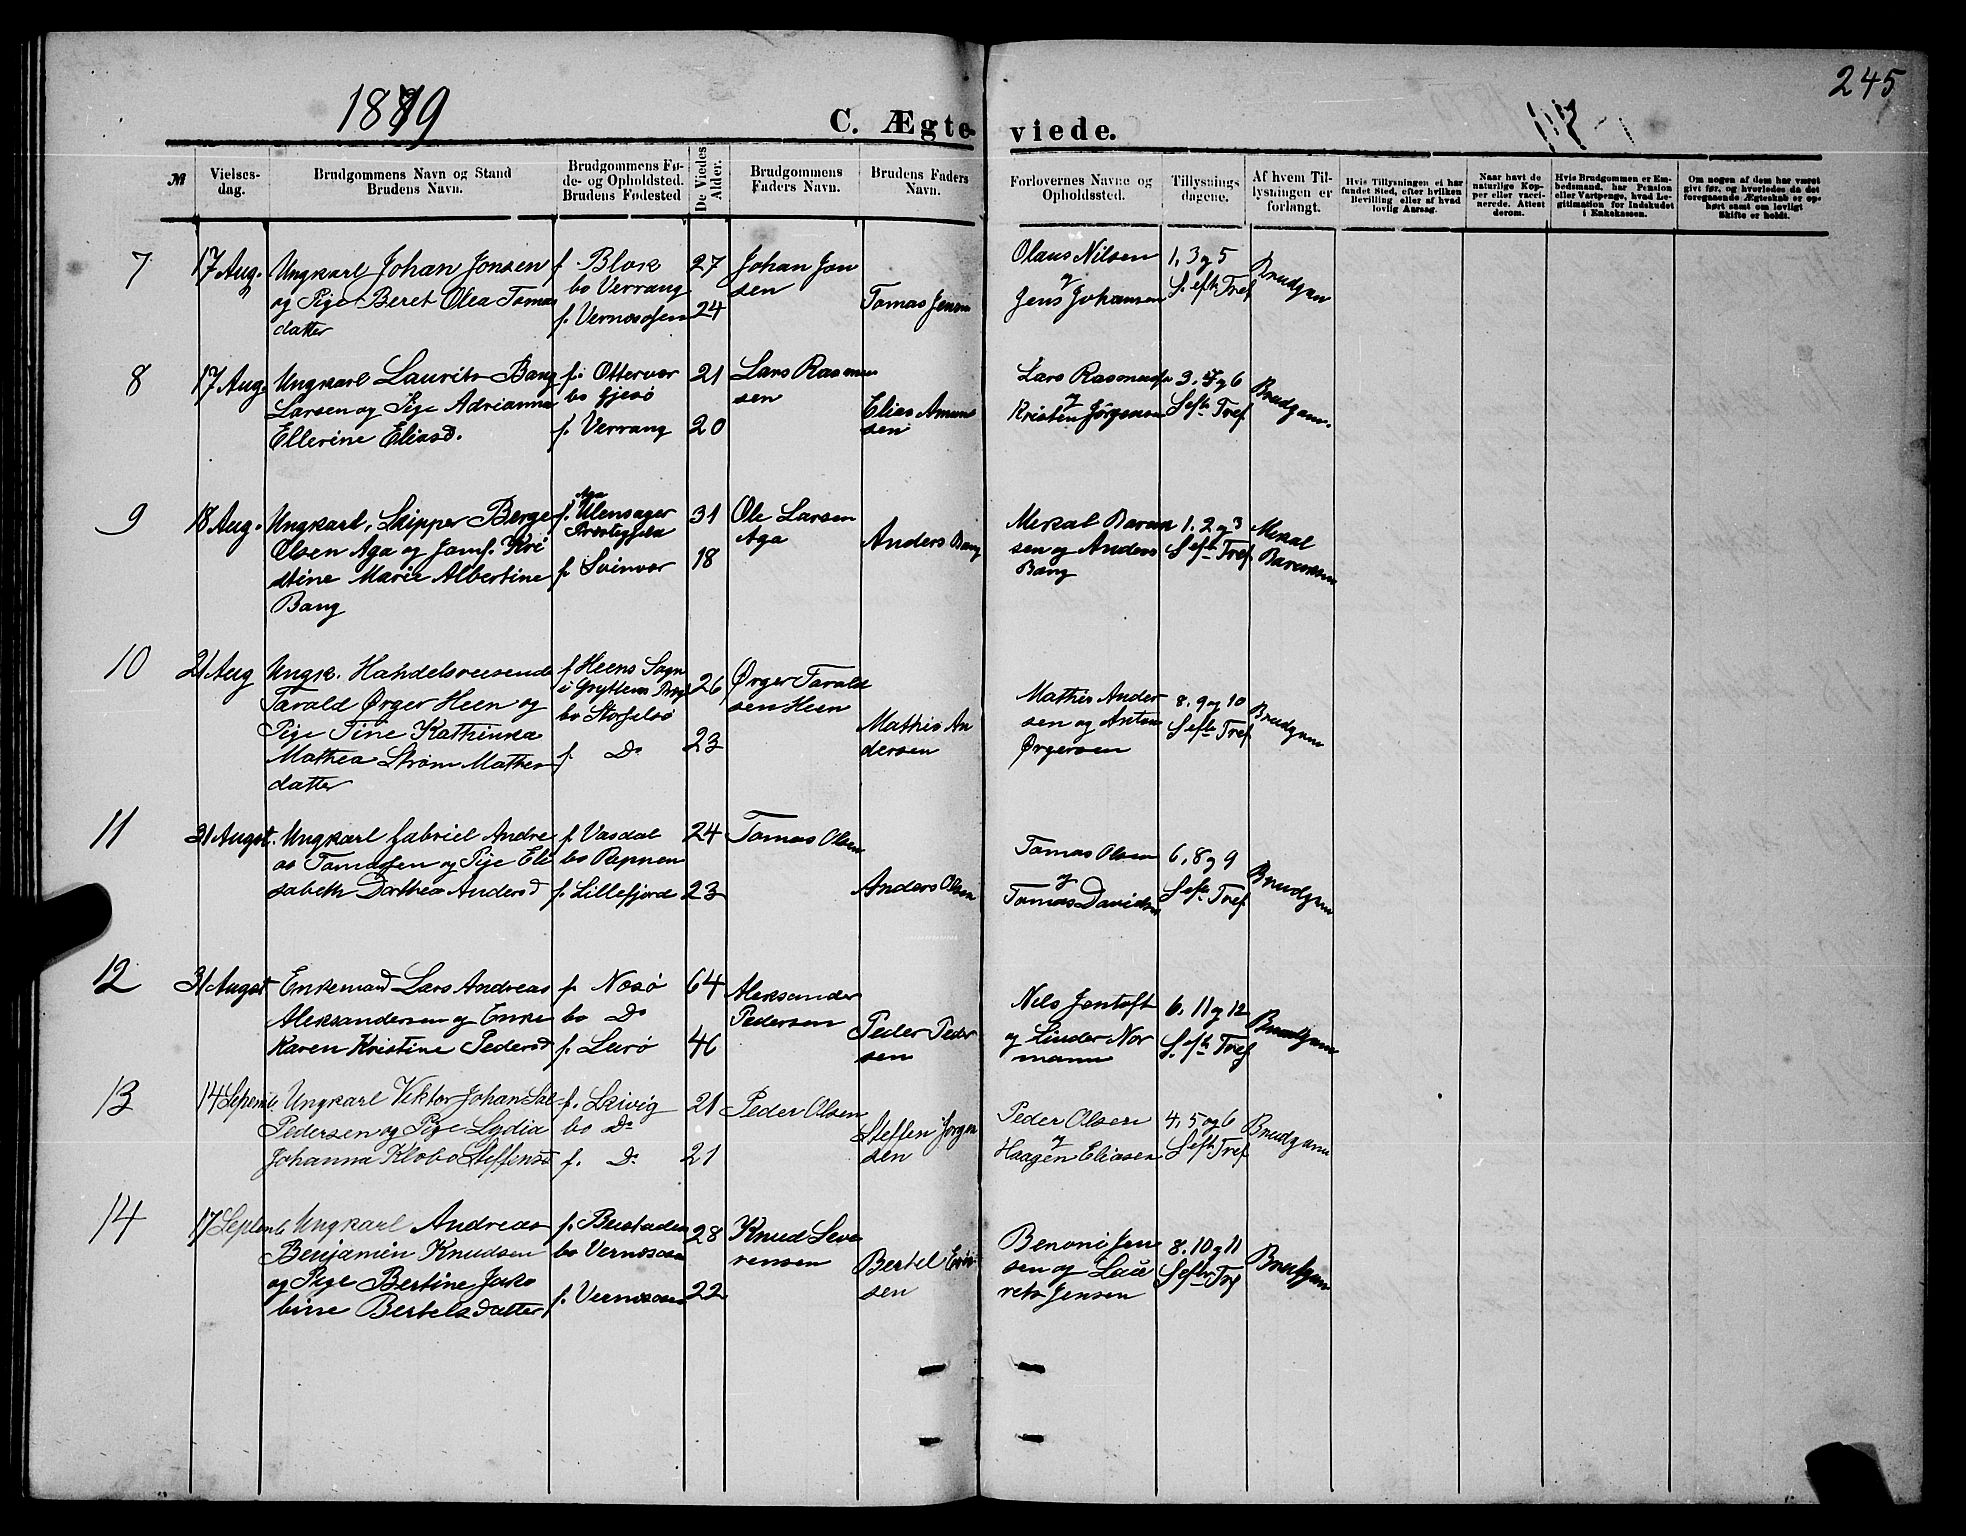 245
1879
C. Ægteviede.
№
Vielsesdag.
Brudgommens Navn og Stand
Brudens Navn.
Brudgommens Føde- og Opholdsted.
Brudens Fødested
De Viedes Alder.
Brudgommens Faders Navn.
Brudens Faders Navn.
Forlovernes Navne og Opholdssted.
Tillysningsdagene.
Af hvem Tillysningen er forlangt.
Hvis Tillysningen ei har fundet Sted, efter hvilken Bevilling eller af hvad lovlig Aarsag.
Naar havt de naturlige Kopper eller vaccinerede. Attest derom.
Hvis Brudgommen er Embedsmand, har Pension eller Vartpenge, hvad Legitimation for Indskudet i Enkekassen.
Om nogen af dem har været givt før, og hvorledes da det foregaaende Ægteskab er ophørt samt om lovligt Skifte er holdt.
7 17 Aug. Ungkarl Johan Jonsen f. Blok 27 Johan Jon Olaus Nilsen 1, 3 og 5 Brudgom
og Pige Beret Olea Tomas bo Verrang sen Tomas Jensen og S. eft. Tref
datter f. Vernososen 24 Jens Johansen
8 17 Aug. Ungkarl Laurits Bang f. Ottervær 21 Lars Rasmus Lars Rasmus 3, 4 og 6 Brudgom.
Larsen og Pige Adrianna bo Gjesø sen Elias Amun og S eft. Tref
Ellerine Eliasd. f. Verrang 20 sen Kristen Jørgensen
9 18 Aug. Ungkarl, Skipper Berge f. Aga Ulensager 31 Ole Larsen Mekal Baren 1, 2 og 3 Mekal
Olsen Aga og Jomf. Kri Præstegjeld Aga Anders Bang sen og Anders S eft. Tref Barensen
stine Marie Albertine f. Svinvær 18 Bang
Bang
10 21 Aug Ungk. Handelsreisende f. Heens Sogn 26 Ørger Tarald Mathis Ander 8, 9 og 10 Brudgom
Tarald Ørger Heen og i Gryttens Prgj sen Heen Mathis An sen og Anton S eft. Tref
Pige Tine Kathinka bo Storfelsø dersen Ørgersen
Mathea Strøm Mathis f. Do 23
datter
11 31 Augst. Ungkarl Gabriel Andre f. Vasdal 24 Tomas Olsen Tomas Olsen 6, 8 og 9 Brudgom
as Tomassen og Pige Eli bo Repnen og S eft. Tref
sabeth Dorthea Andersd f. Lillefjord 23 Anders Olsen Tomas Davidsen
12 31 Augst Enkemand Lars Andreas f. Nosø 64 Aleksander Nils Jentoft 6, 11 og 12 Brudgom
Aleksandersen og Enke bo Do Pedersen Peder Peder og Linder Nor S. eft. Tref
Karen Kristine Pedersd f. Lurø 46 sen mann
13 14 Septemb. Ungkarl Viktor Johan Sal f. Leivig 21 Peder Olsen Peder Olsen 4, 5 og 6 Brudgom
Pedersen og Pige Lydia bo Do Steffen Jørgen og S eft. Tref
Johanna Klobo Steffensd f. Do 21 sen Haagen Eliasen
14 17 Septemb Ungkarl Andreas f. Bustaden 28 Knud Seve Benoni Jen 8, 10 og 11 Brudgom
Benjamin Knudsen bo Vernososen rensen Bertel Erik sen og Lau S eft. Tref
og Pige Bertine Jako f. Vernososen 22 sen rets Jensen
bine Bertelsdatter